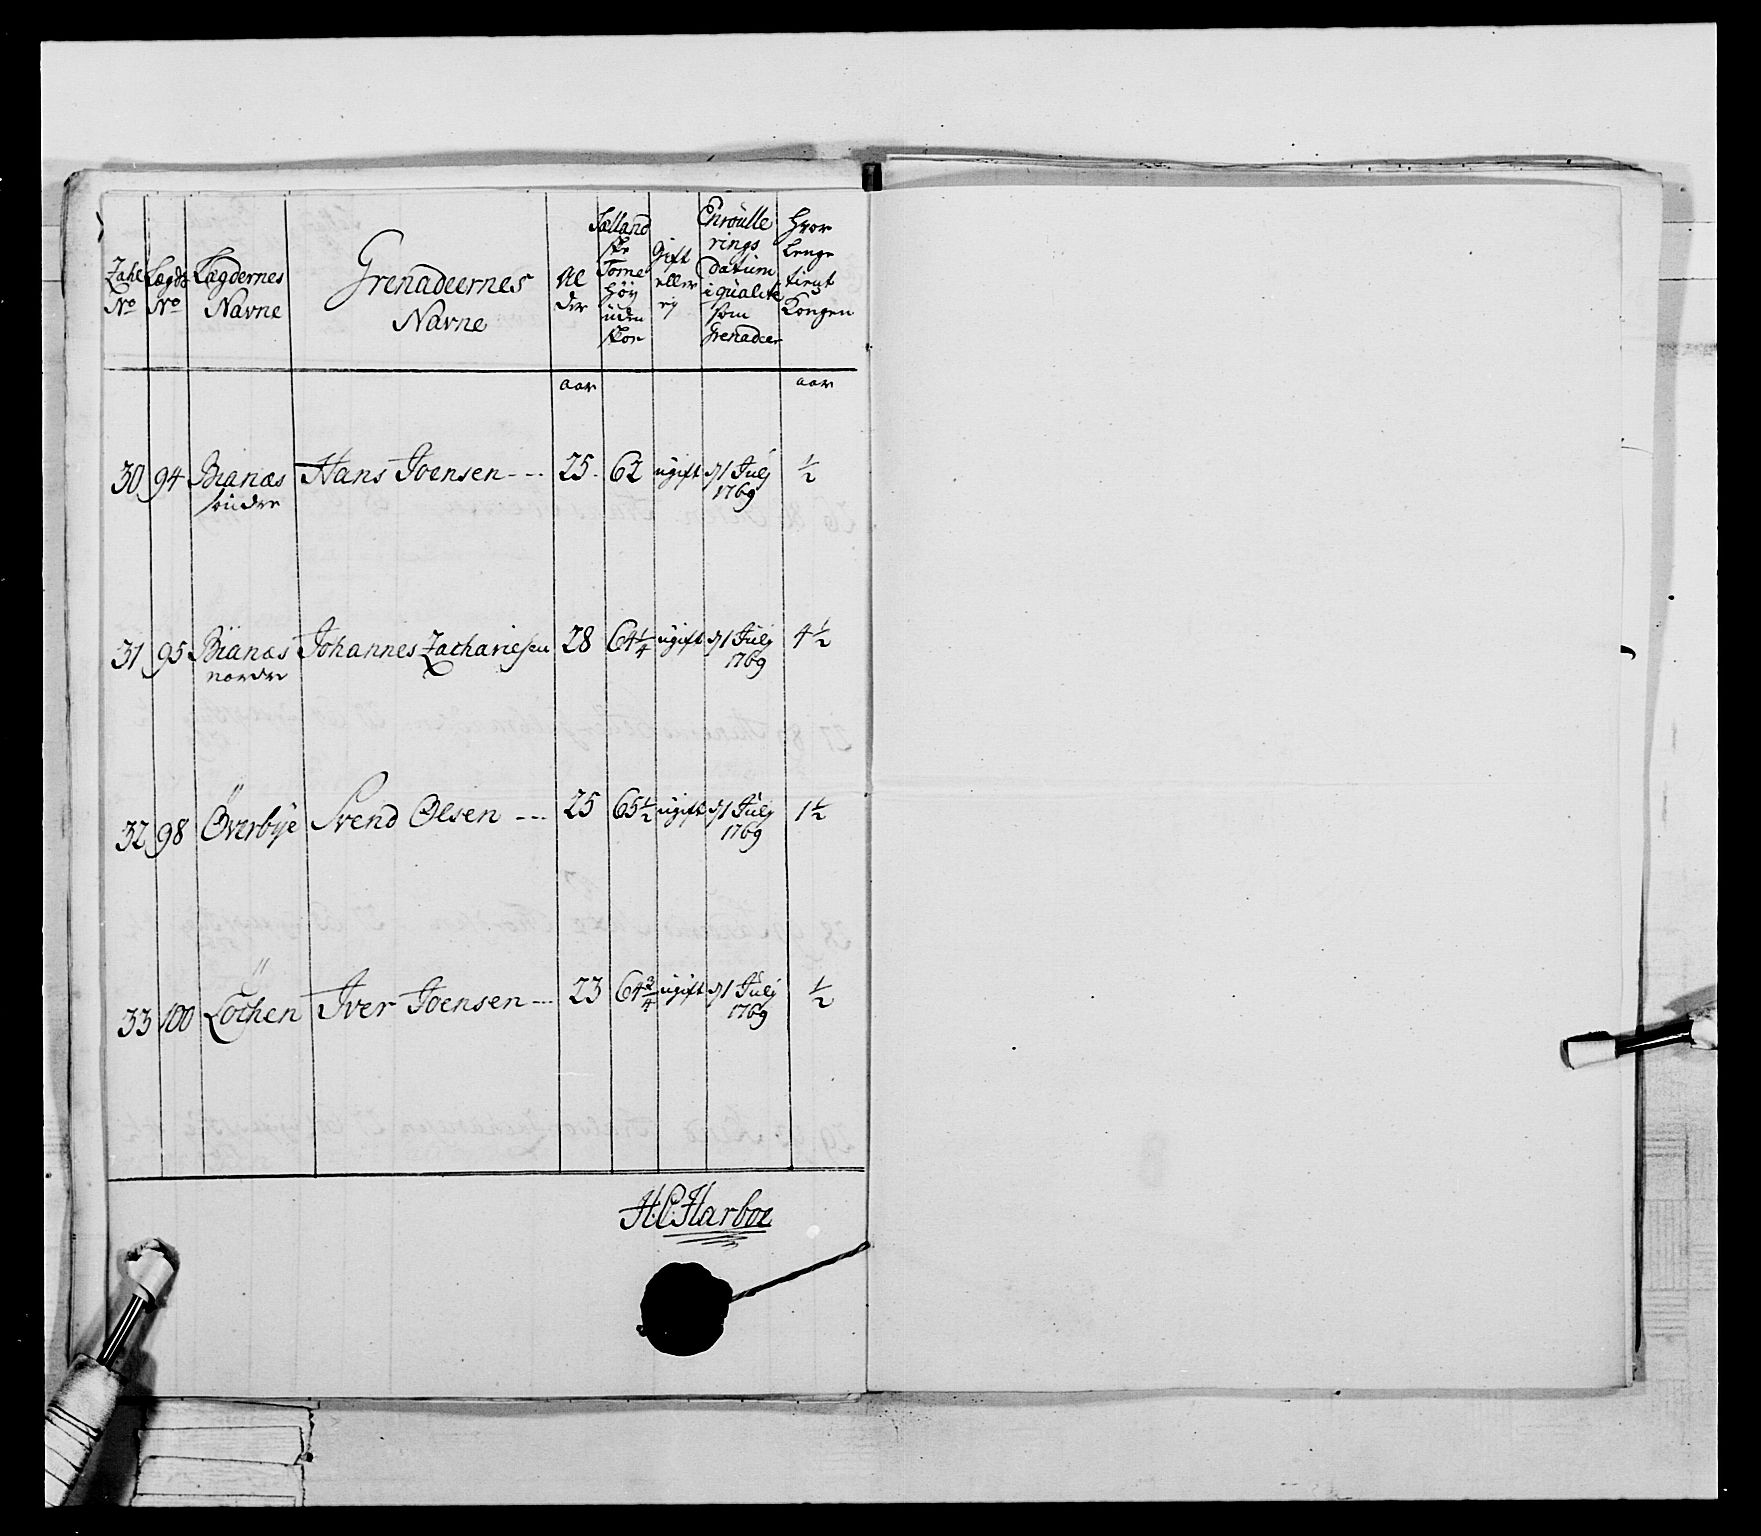 Zahl No | Lægds No | Lægdernes Navne | Grenadeernes Navne | Al der | Sælland ske Tome höy uden skoe | Gift eller ey | Enroulle rings datum i qualite som Grenadeer | Hvor lenge tient Kongen
aar | aar
30 | 94 | Bianæs söndre | Hans Joensen - - - | 25. | 62 | ugift | d 1 Julj 1769 | ½
31 | 95 | Bianæs nordre | Johannes Zachariesen | 28 | 64¼ | ugift | d 1 Julj 1769 | 4½
32 | 98 | Överbÿe | Svend Olsen - - - | 25 | 65½ | ugift | d 1 Julj 1769 | 1½
33 | 100 | Löchen | Iver Joensen - - - | 23 | 64¾ | ugift | d 1 Julj 1769 | ½
H:C:Harboe